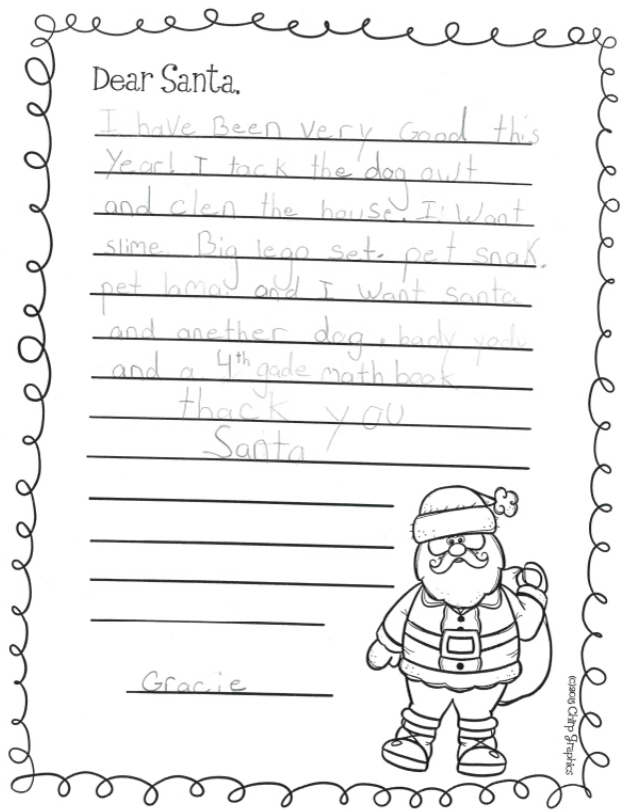 Dear Santa,
I have Been very Good this
Year! I tack the dog owt
and clen the house. I Want
slime. Big lego set. pet snak.
pet lama. and I want santa
and anether dog, bady yody
and a 4th gade math book
thack you
Santa
Gracie
(c)2015 Chirp Graphics